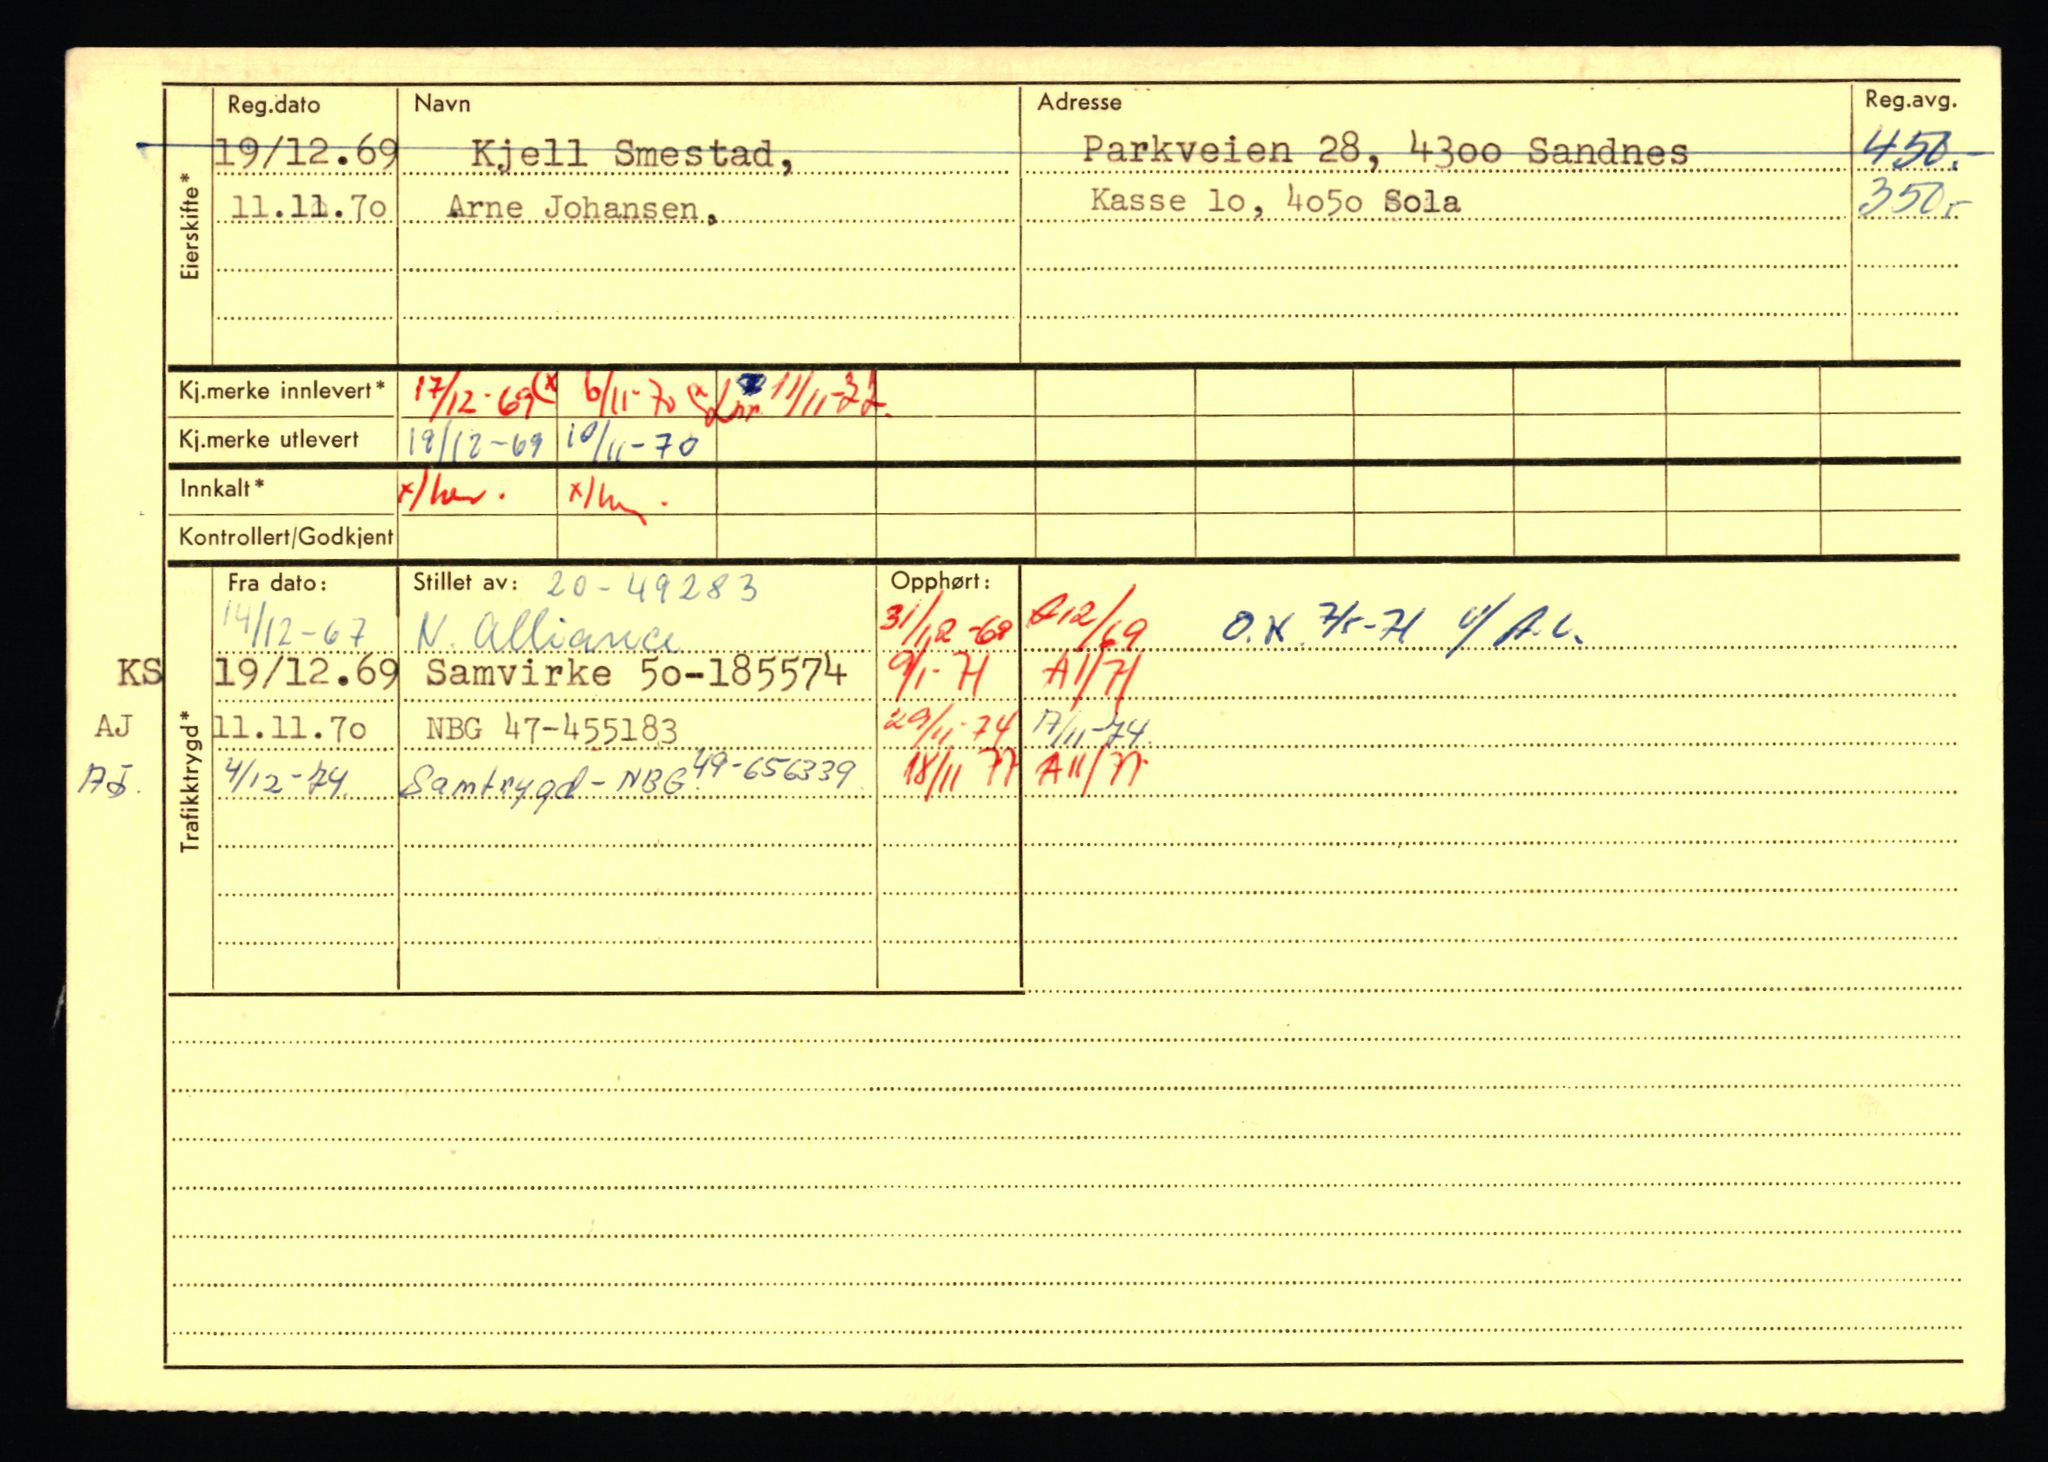 Reg.dato Navn Adresse Reg.avg.
19/12.69 Kjell Smestad, Parkveien 28, 4300 Sandnes 450.-
11.11.70 Arne Johansen. Kasse 10, 4050 Sola 350.-
Eierskifte*
Kj.merke innlevert* 17/12-69 (x 6/11-70 (x 11/11-
Kj.merke utlevert 19/12-69 10/11-70
Innkalt* x/ x/
Kontrollert/Godkjent
Fra dato: Stillet av: 20-49283 Opphørt:
14/12-67 N. Alliance 31/12-69 A12/69 O.K. 7/5-71 A.L.
KS 19/12.69 Samvirke 50-185574 9/1-71 A1/71
AJ 11.11.70 NBG 47-455183 29/11-74 17/11-74.
AJ. 4/12-74. Samtrygd-NBG 49-656339 18/11 77 A11/77
Trafikktrygd*